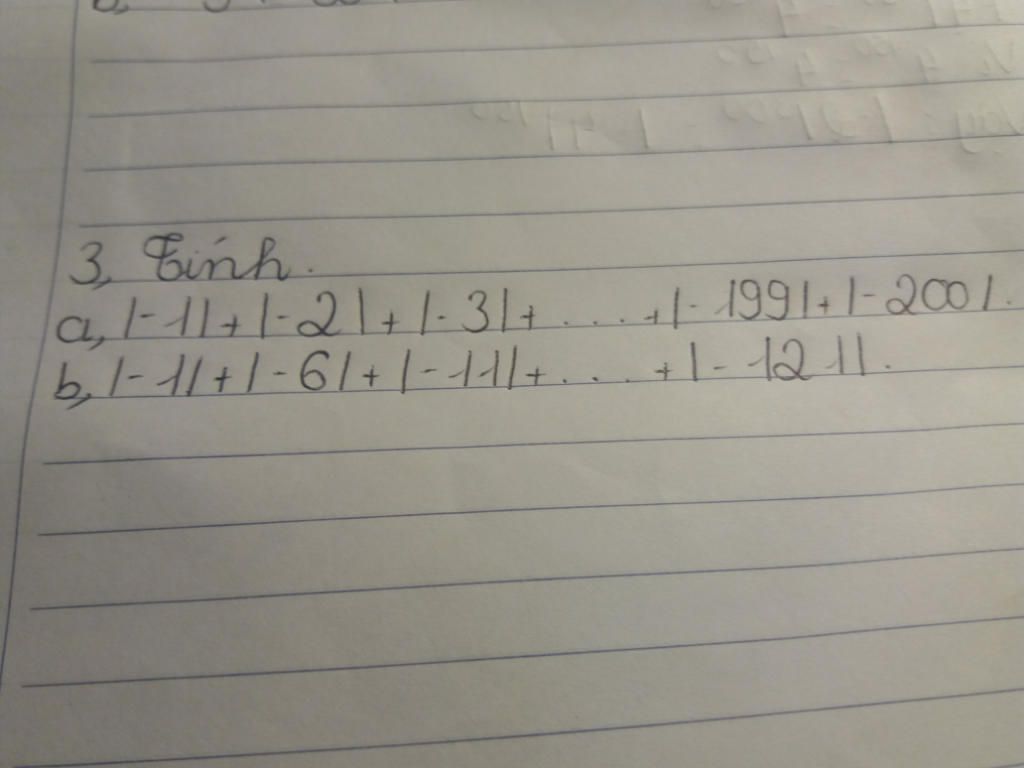 3, Tính.
a, |-1|+|-2|+|-3|+....+|-199|+|-200|.
b, |-1|+|-6|+|-11|+....+|-121|.